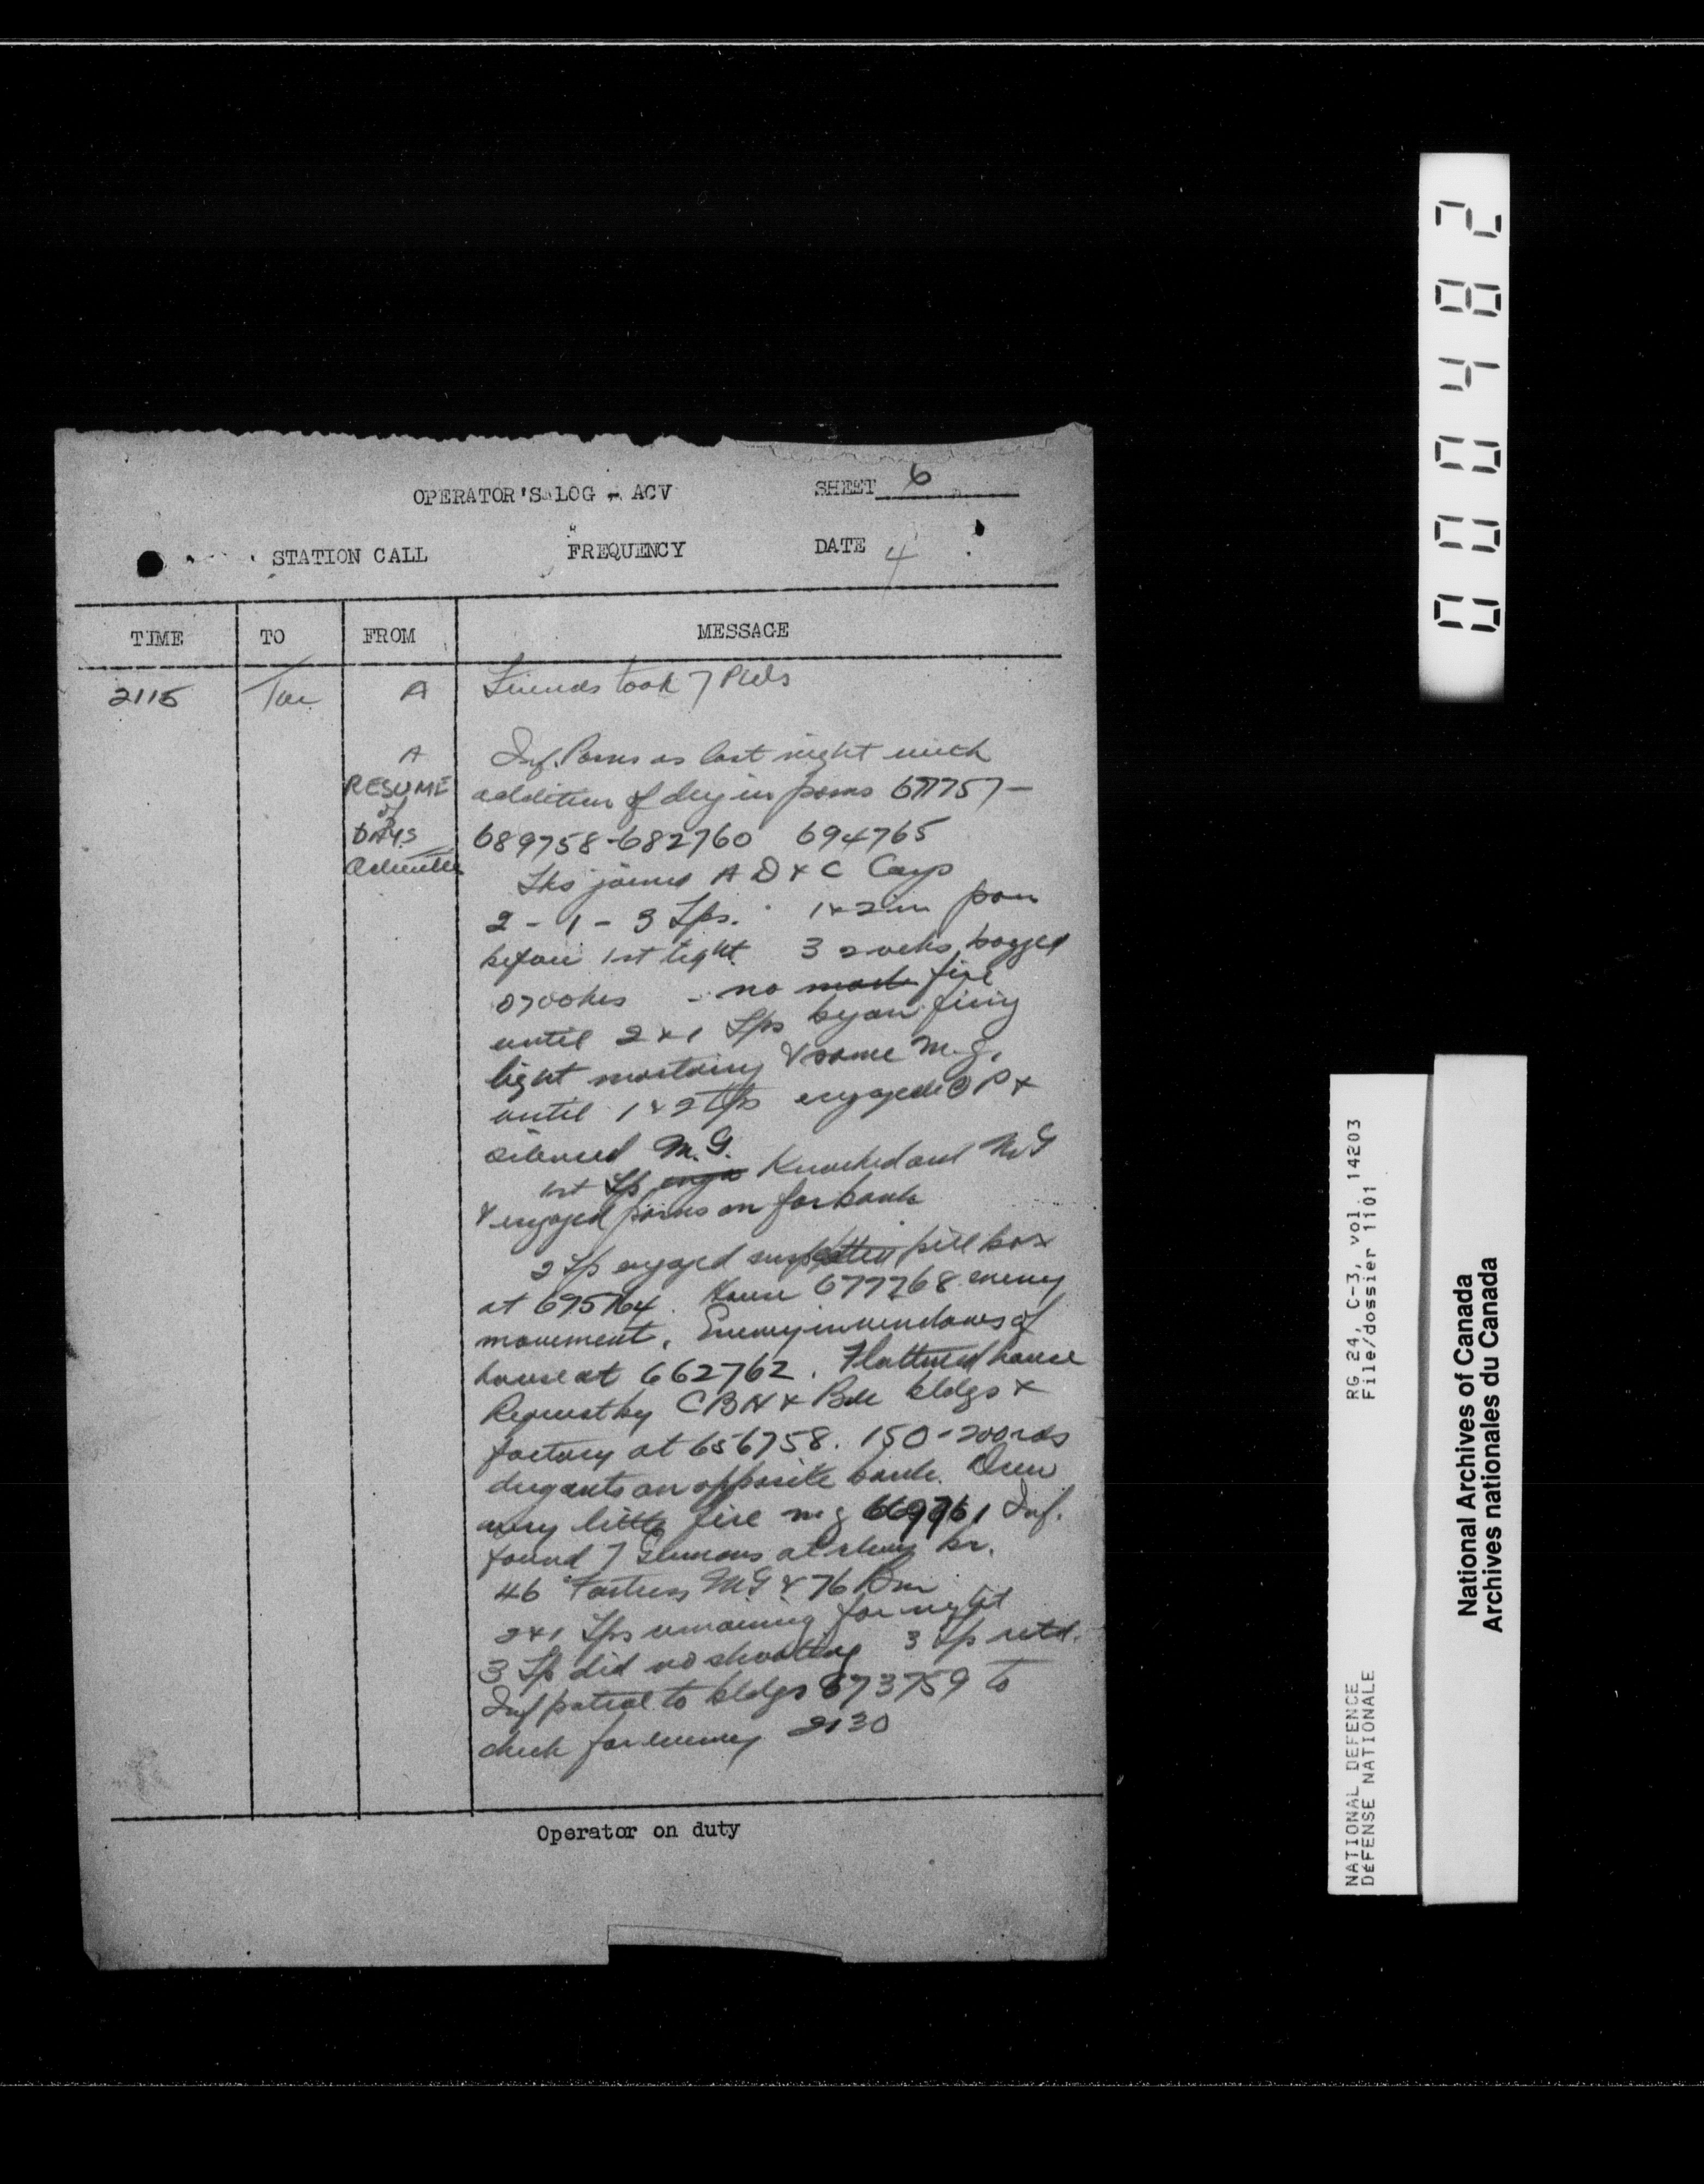 OPERATOR'S LOG - ACV SHEET 6
STATION CALL FREQUENCY DATE 4
TIME TO FROM MESSAGE
2115 Tac A Friends took 7 PWs
A Inf. Posns as last night with
RESUME addition of dug in posns 677757 -
of
DAYS 689758-682760 694765
Activities
Tks joined A D & C Coys
2 - 1 - 3 Tps. 1 & 2 in posn
before 1st light. 3 2 vehs bogged
0700hrs - no made fire
until 2 & 1 Tps began firing
light mortaring & some M.G.
until 1 & 2 Tps engaged O P &
silenced M.G.
1st Tp enga Knocked out MG
& engaged posns on far bank
2 Tp engaged suspected pill box
at 695764. House 677768 enemy
movement. Enemy in windows of
house at 662762. Flattened house
Request by CBH & Bde bldgs &
factory at 656758. 150-200 rds
dugouts on opposite bank. Drew
very little fire mg 669761 Inf.
found 7 Germans at
46 Fortress MG & 76 Bn
2 & 1 Tps remaining for night
3 Tp did no shooting 3 Tp retd.
Inf patrol to bldgs 673759 to
check for enemy 2130
Operator on duty
000482
NATIONAL DEFENCE RG 24, C-3, vol. 14203
DÉFENSE NATIONALE File/dossier 1101
National Archives of Canada
Archives nationales du Canada